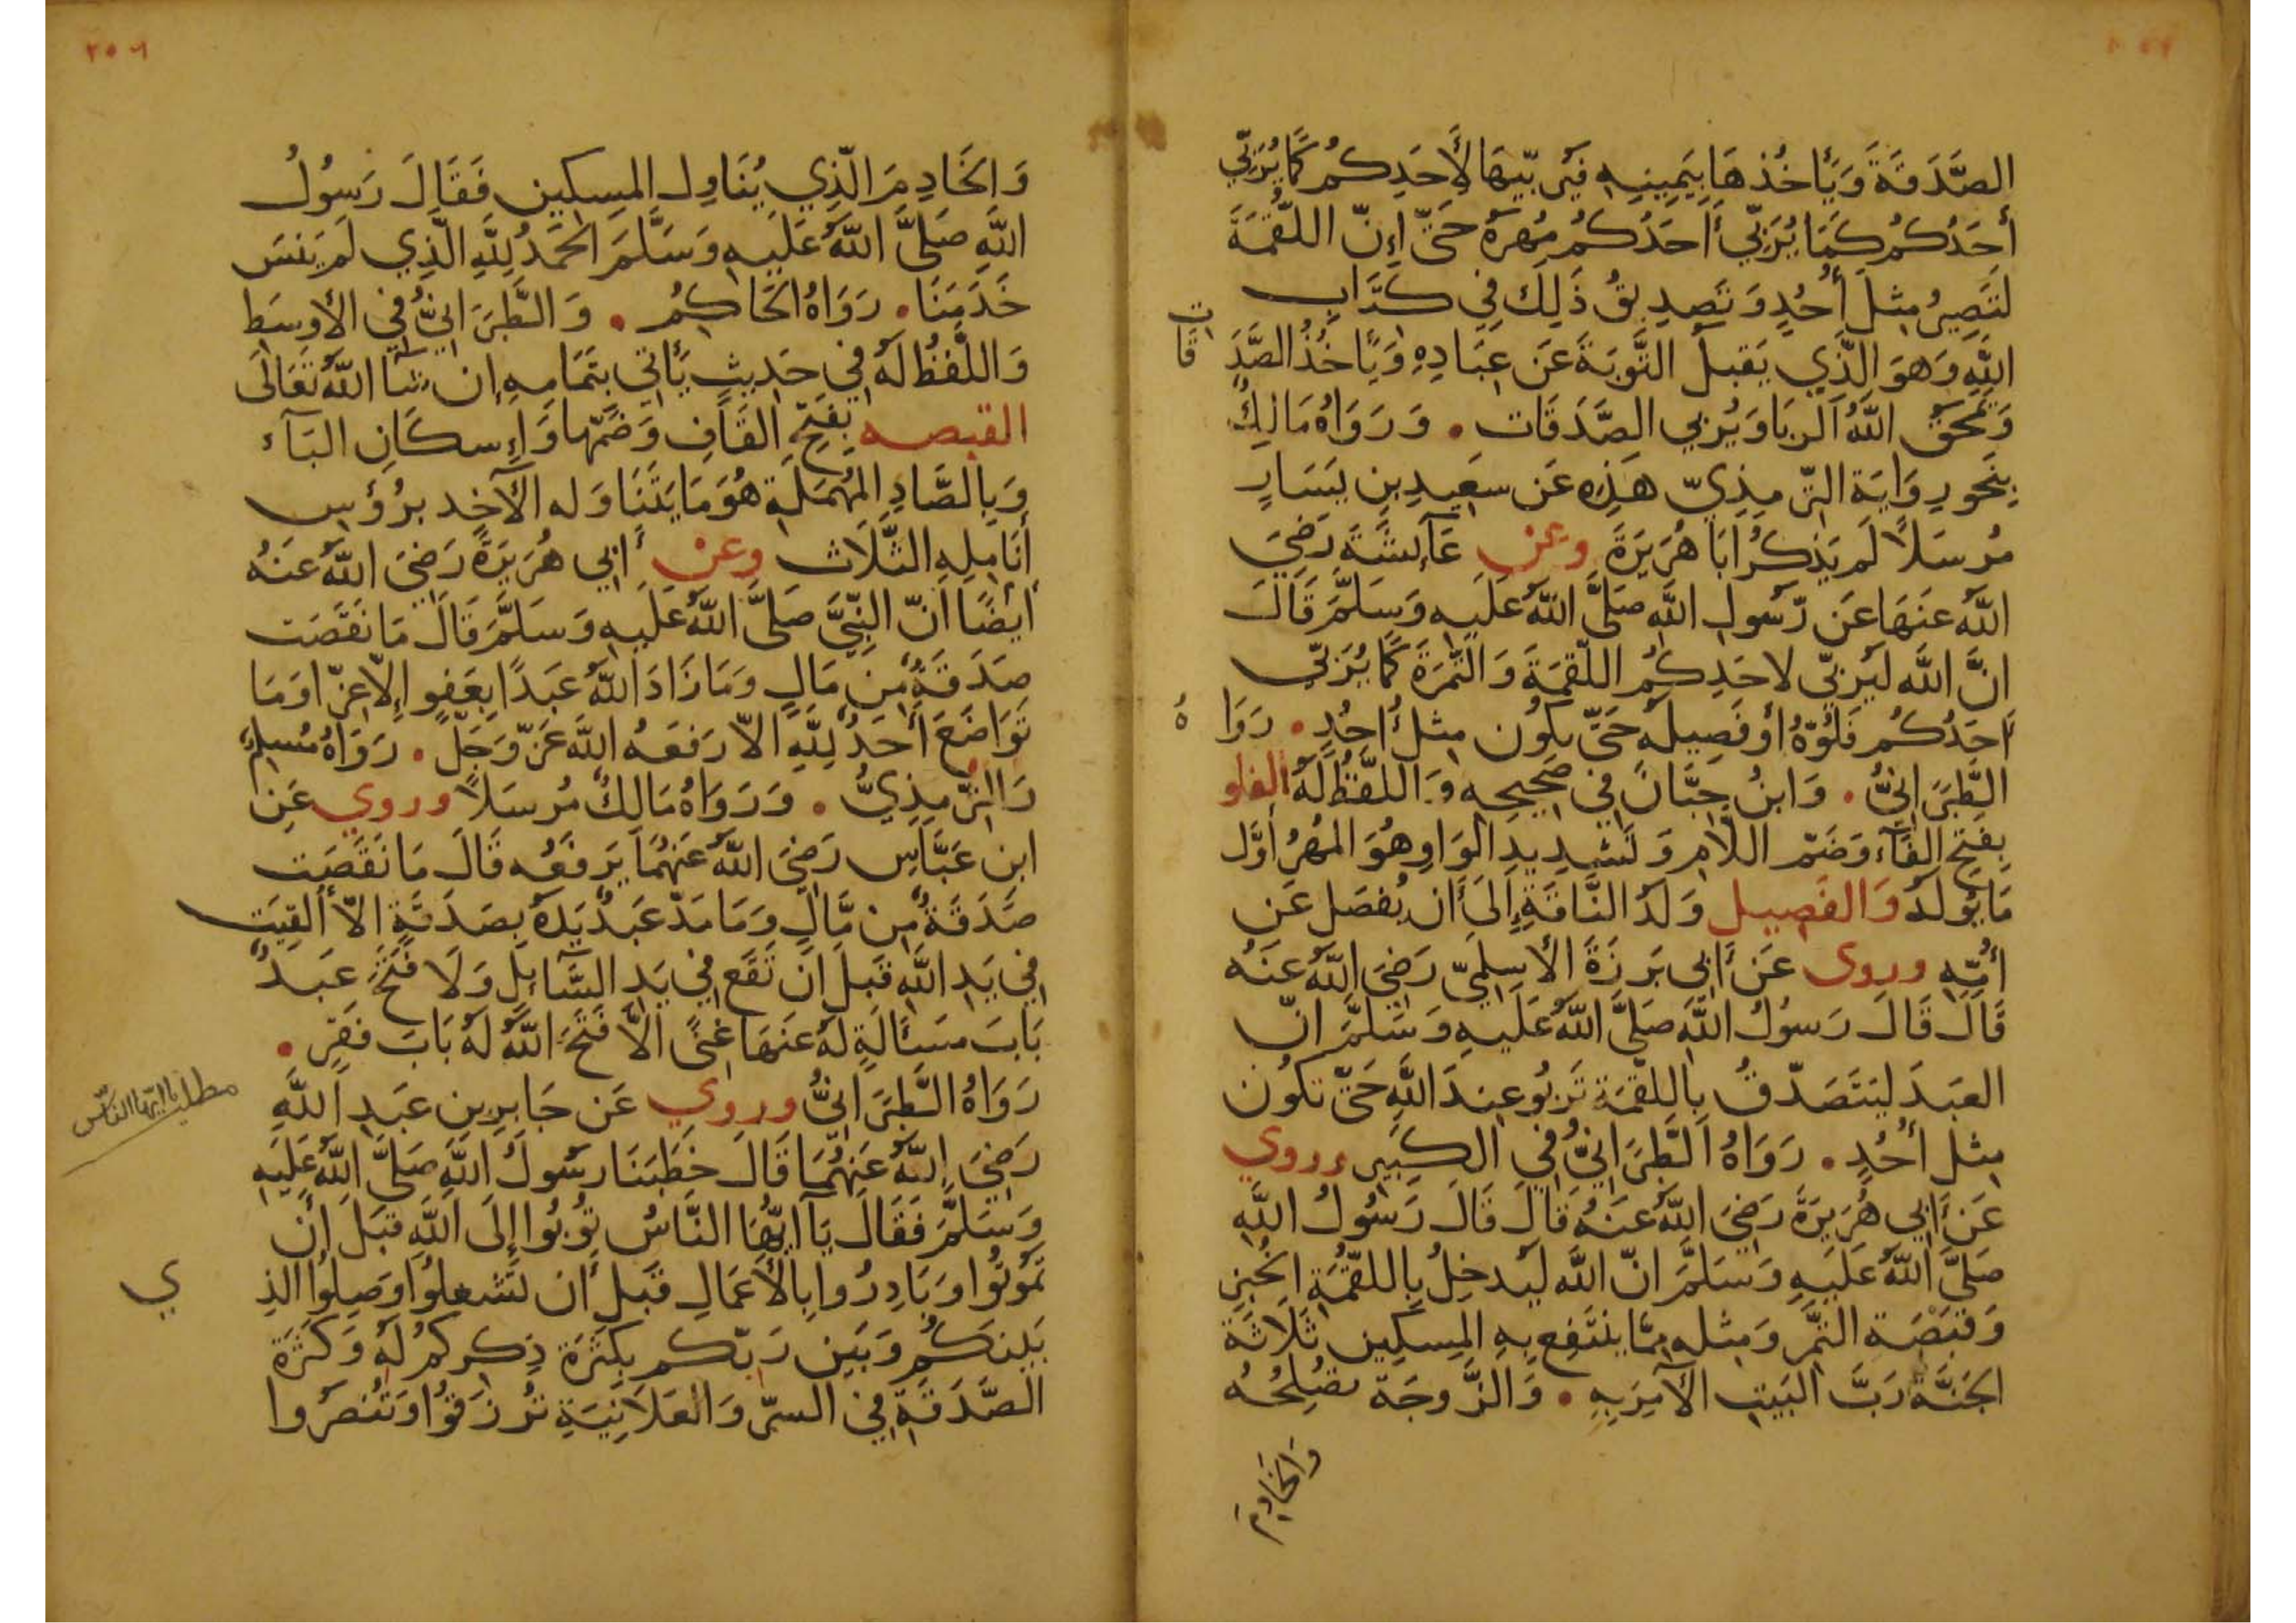 الصَّدَقَةَ وَيَأخُذهَا بِيَمِينِهِ فَيُرَبّيهَا لأَحَدِكُمْ كَمَا يُرَبّي
أحَدُكُم كَمَا يُرَبّي أَحَدُكُم مُهرَهُ حَتّى إِنّ اللّقمَةَ
لَتَصِيرُ مِثلَ أُحُدٍ وَتَصدِيقُ ذَلِكَ فِي كتَابِ
اللَّهِ وَهوَ الّذِي يَقبلُ التَّوبَةَ عَن عِبَادِهِ وَيَأخُذُ الصَّدَقَات
وَيَمحَقُ اللَّهُ الرِبَا وَيُربي الصَّدَقَات . وَرَوَاهُ مَالِكٌ
بِنَحوِ رِوَايَةِ التّرمِذِيّ هَذِهِ عَن سَعِيدِ بنِ يَسَارٍ
مُرسَلاً لَم يَذكُر أبَا هُرَيرَةَ وعن عَآئِشَةَ رَضِيَ
اللَّهُ عَنهَا عَن رّسُولِ اللَّه صَلَّى اللَّهُ عَلَيهِ وَسَلَّمَ قَالَ
انَّ اللَّه لَيُربّي لاحَدِكُمُ اللّقمَةَ وَالتَّمرَةَ كَمَا يُرَبّي
أَحَدُكُم فَلُوّهُ أو فَصِيلَهُ حَتّى يكُون مِثلَ أُحُدٍ . رَوَاهُ
الطَّبَرَانِيُّ . وَابنُ حِبَّانَ فِي صَحِيحِهِ وَاللَّفظُ لَهُ الفلو
بِفَتحِ الفَآءِ وَضَمّ اللّامِ وَتَشدِيدِ الوَاوِ هُوَ المُهرُ أوَّل
مَا يُولَدُ وَالفَصِيل وَلَدُ النَّاقَةِ إِلَى أَن يُفصَل عَن
أُمّهِ وروى عَن أَبِي بَرزَةَ الأسلَمِيّ رَضِيَ اللَّهُ عَنهُ
قَالَ قَالَ رَسُولُ اللَّه صَلَّى اللَّهُ عَلَيهِ وَسَلَّمَ انّ
العَبَدَ لَيَتَصَدّقُ بِاللقمَةِ تَربُو عِندَ اللَّهِ حَتّى تكُون
مِثل أُحُدٍ . رَوَاهُ الطَّبَرَانِيُّ فِي الكَبِير وروي
عَن أَبِي هُرَيرَةَ رَضِيَ اللَّهُ عَنهُ قَالَ قَالَ رَسُولُ اللَّهِ
صَلَّى اللَّهُ عَلَيهِ وَسَلَّمَ انّ اللَّه لَيُدخِلُ بِاللقمَةِ الخُبزِ
وَقَبصَةِ التّمرِ وَمِثلِهِ مِمّا يَنتَفِعُ بِهِ المِسكِين ثَلَاثَةً
الجَنَّةَ رَبَّ البَيتِ الآمِرَ بِهِ . وَالزَّوجَة تصُلِحُهُ
وَالخَادِمَ
٢٥٦
وَالخَادِمَ الّذِي يُنَاوِل المِسكِين فَقَالَ رَسُولُ
اللَّهِ صَلَّى اللَّهُ عَلَيهِ وَسَلَّمَ الحَمدُ لِلَّهِ الّذِي لَم يَنسَ
خَدَمَنَا . رَوَاهُ الحَاكِمُ . وَالطَّبَرَانِيُّ فِي الأوسَطِ
وَاللَّفظُ لَهُ فِي حَدِيثٍ يَأتي بِتَمَامِهِ إن شَآ اللَّهُ تَعَالَى
القبصه بِفَتحِ القَافِ وَضَمّها وَإِسكَانِ البَآءِ
وَبِالصَّادِ المُهمَلَةِ هُوَ مَا يَتَنَاوَله الآخِذ برُؤسِ
أنَامِلِهِ الثَّلَاث وعن أَبِي هُرَيرَةَ رَضِيَ اللَّهُ عَنهُ
أَيضًا أنّ النّبِيَّ صَلَّى اللَّهُ عَلَيهِ وَسَلَّمَ قَالَ مَا نَقَصَت
صَدَقَةٌ مِن مَالٍ وَمَا زَادَ اللَّهُ عَبدًا بِعَفوٍ إلّا عِزّا وَمَا
تَوَاضَعَ أَحَدٌ لِلَّهِ الاّ رَفَعَهُ اللَّه عَزّ وَجَلّ . رَوَاهُ مُسلِمٌ
وَالتّرمِذِيُّ . وَرَوَاهُ مَالِكٌ مُرسَلاً وروي عَنِ
ابنِ عَبَّاسٍ رَضِيَ اللَّهُ عَنهُمَا يَرفَعُه قَالَ مَا نَقَصَت
صَدَقَةٌ مِن مَّالٍ وَمَا مَدّ عَبدٌ يَدَهُ بِصَدَقَةٍ الاّ أُلقِيَت
فِي يَدِ اللَّهِ قَبلَ أن تَقَع فِي يَدِ السَّآئِلِ وَلَا فَتَحَ عَبدٌ
بَابَ مسَئَالَةٍ لَهُ عَنهَا غِنًى الاَّ فَتَحَ اللَّهُ لَهُ بَابَ فَقرٍ .
رَوَاهُ الطَّبَرَانِيُّ وروي عَن جَابِرِ بنِ عَبدِ اللَّهِ
مطلب يا ايّها النّاس
رَضِيَ اللَّهُ عَنهُمَا قَالَ خَطَبَنَا رسُولُ اللَّهِ صَلَّى اللَّهُ عَلَيهِ
وَسَلَّمَ فَقَالَ يَآ أيّهَا النَّاسُ تُوبُوا إلَى اللَّهِ قَبلَ أَن
تَمُوتُوا وَبَادِرُوا بِالأعمَالِ قَبلَ أَن تَشغلُوا وَصِلُوا الذِي
بَينَكُم وَبَين رَبّكم بِكَثرَةِ ذِكرِكُم لَهُ وَكَثرَةِ
الصَّدَقَةِ فِي السرّ وَالعَلَانِيَةِ تُرزَقُوا وَتُنصَرُوا